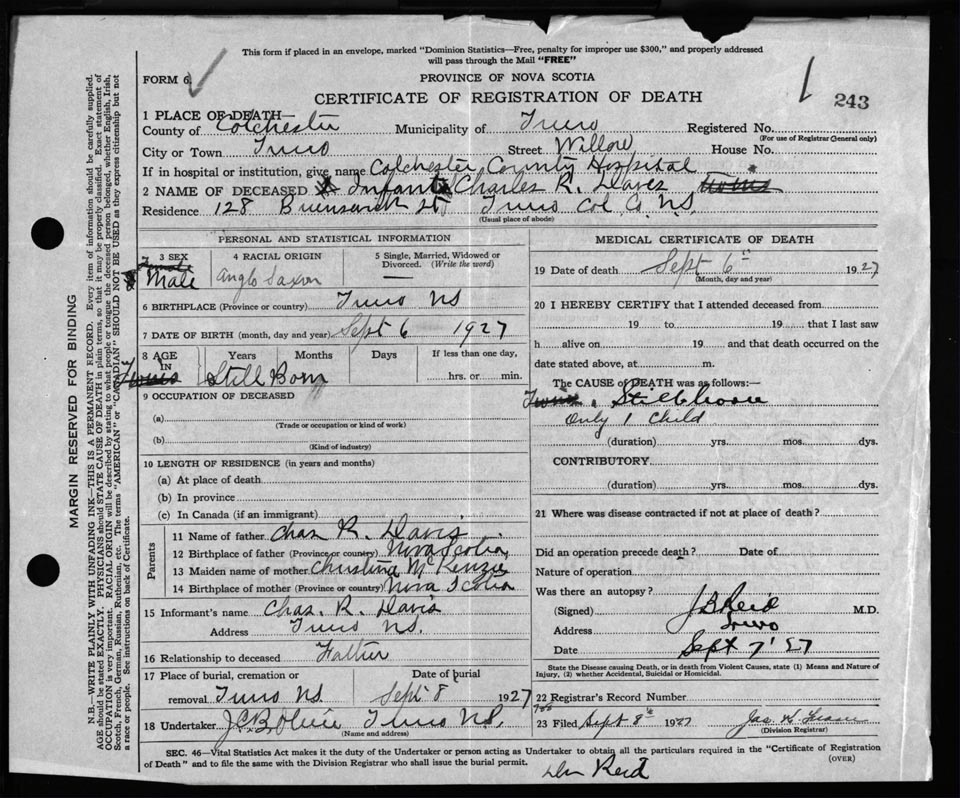 This form if placed in an envelope, marked "Dominion Statistics—Free, penalty for improper use $300," and properly addressed
will pass through the Mail "FREE"
FORM 6.
PROVINCE OF NOVA SCOTIA
CERTIFICATE OF REGISTRATION OF DEATH
243
1 PLACE OF DEATH—
County of Colchester Municipality of Truro Registered No.
(For use of Registrar General only)
City or Town Truro Street Willow House No.
If in hospital or institution, give name Colchester County Hospital
2 NAME OF DECEASED Infant Charles R. Davis Twins
Residence 128 St Truro Col Co. N.S.
(Usual place of abode)
PERSONAL AND STATISTICAL INFORMATION
3 SEX
Female
Male
4 RACIAL ORIGIN
Anglo Saxon
5 Single, Married, Widowed or
Divorced. (Write the word)
6 BIRTHPLACE (Province or country) Truro NS
7 DATE OF BIRTH (month, day and year) Sept 6 1927
8 AGE IN Years Months Days If less than one day,
Twins Still Born hrs. or min.
9 OCCUPATION OF DECEASED
(a)
(Trade or occupation or kind of work)
(b)
(Kind of industry)
10 LENGTH OF RESIDENCE (in years and months)
(a) At place of death
(b) In province
(c) In Canada (if an immigrant)
Parents
11 Name of father Chas R. Davis
12 Birthplace of father (Province or country) Nova Scotia
13 Maiden name of mother Christina McKenzie
14 Birthplace of mother (Province or country) Nova Scotia
15 Informant's name Chas. R. Davis
Address Truro NS.
16 Relationship to deceased Father
17 Place of burial, cremation or Date of burial
removal Truro NS. Sept 8 1927
18 Undertaker Truro NS.
(Name and address)
MEDICAL CERTIFICATE OF DEATH
19 Date of death Sept 6th 1927
(Month, day and year)
20 I HEREBY CERTIFY that I attended deceased from
19 to 19 that I last saw
h alive on 19 and that death occurred on the
date stated above, at m.
The CAUSE OF DEATH was as follows:—
Twins, Stillborn
Only 1 child
(duration) yrs. mos. dys.
CONTRIBUTORY
(duration) yrs. mos. dys.
21 Where was disease contracted if not at place of death?
Did an operation precede death? Date of
Nature of operation
Was there an autopsy?
(Signed) J B Reid M.D.
Address Truro
Date Sept 7' 27
State the Disease causing Death, or in death from Violent Causes, state (1) Means and Nature of
Injury, (2) whether Accidental, Suicidal or Homicidal.
22 Registrar's Record Number
23 Filed Sept 8th 1927 Jas.
(Division Registrar)
SEC. 46—Vital Statistics Act makes it the duty of the Undertaker or person acting as Undertaker to obtain all the particulars required in the "Certificate of Registration
of Death" and to file the same with the Division Registrar who shall issue the burial permit.
(OVER)
Reid
MARGIN RESERVED FOR BINDING
N.B.—WRITE PLAINLY WITH UNFADING INK—THIS IS A PERMANENT RECORD. Every item of information should be carefully supplied.
AGE should be stated EXACTLY. PHYSICIANS should STATE CAUSE OF DEATH in plain terms, so that it may be properly classified. Exact statement of
OCCUPATION is very important. RACIAL ORIGIN will be described by stating to what people or tongue the deceased person belonged, whether English, Irish,
Scotch, French, German, Russian, Ruthenian, etc. The terms "AMERICAN" or "CANADIAN" SHOULD NOT BE USED as they express citizenship but not
a race or people. See instructions on back of Certificate.